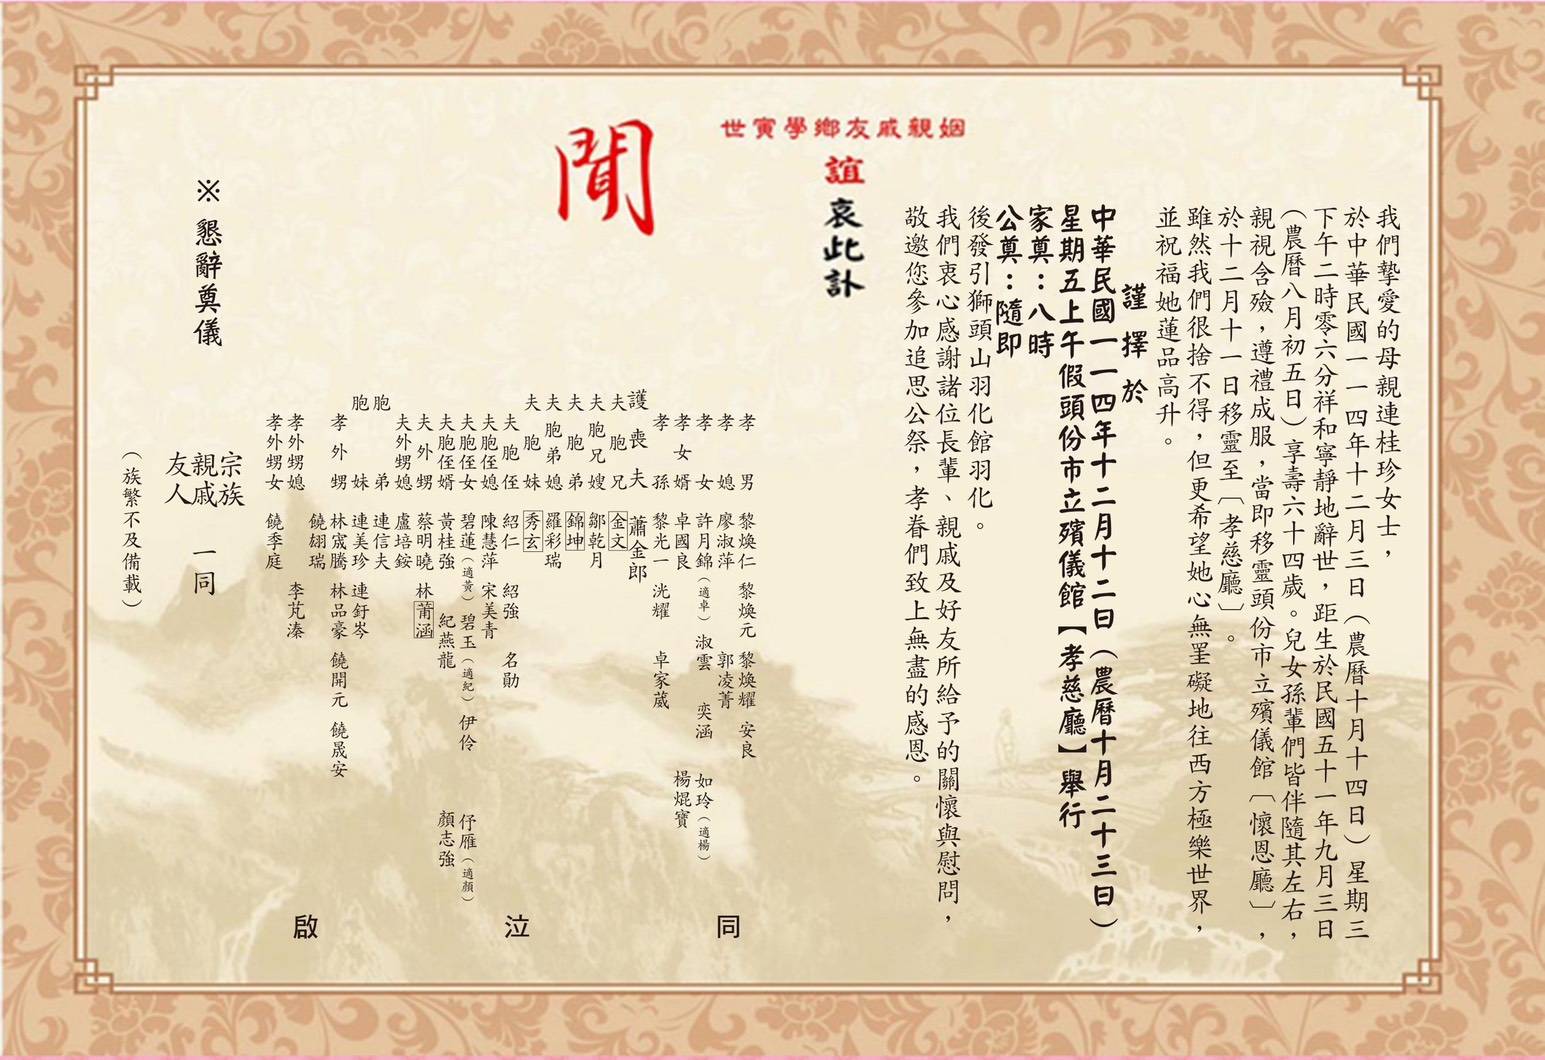 我們摯愛的母親連桂珍女士，
於中華民國一一四年十二月三日（農曆十月十四日）星期三
下午二時零六分祥和寧靜地辭世，距生於民國五十一年九月三日
（農曆八月初五日）享壽六十四歲。兒女孫輩們皆伴隨其左右，
親視含殮，遵禮成服，當即移靈頭份市立殯儀館〔懷恩廳〕，
於十二月十一日移靈至〔孝慈廳〕。
雖然我們很捨不得，但更希望她心無罣礙地往西方極樂世界，
並祝福她蓮品高升。
謹擇於
中華民國一一四年十二月十二日（農曆十月二十三日）
星期五上午假頭份市立殯儀館【孝慈廳】舉行
家奠：八時
公奠：隨即
後發引獅頭山羽化館羽化。
我們衷心感謝諸位長輩、親戚及好友所給予的關懷與慰問，
敬邀您參加追思公祭，孝眷們致上無盡的感恩。
姻親戚友鄉學寅世
誼
哀此訃
聞
孝男 黎煥仁 黎煥元 黎煥耀 安良
孝媳 廖淑萍 郭凌菁
孝女 許月錦（適卓） 淑雲 奕涵 如玲（適楊）
孝女婿 卓國良 楊焜寶
孝孫 黎光一 洸耀 卓家葳
護喪夫 蕭金郎
夫胞兄 金文
夫胞兄嫂 鄒乾月
夫胞弟 錦坤
夫胞弟媳 羅彩瑞
夫胞妹 秀玄
夫胞侄 紹仁 紹強 名勛
夫胞侄媳 陳慧萍 宋美青
夫胞侄女 碧蓮（適黃） 碧玉（適紀） 伊伶 伃雁（適顏）
夫胞侄婿 黃桂強 紀燕龍 顏志強
夫外甥 蔡明曉 林莆涵
夫外甥媳 盧培銨
胞弟 連信夫
胞妹 連美珍 連釨岑
孝外甥 林宬騰 林品豪 饒開元 饒晟安
饒翃瑞
孝外甥媳 李芃溱
孝外甥女 饒季庭
同
泣
啟
宗族
親戚
友人
一同
※懇辭奠儀
（族繁不及備載）